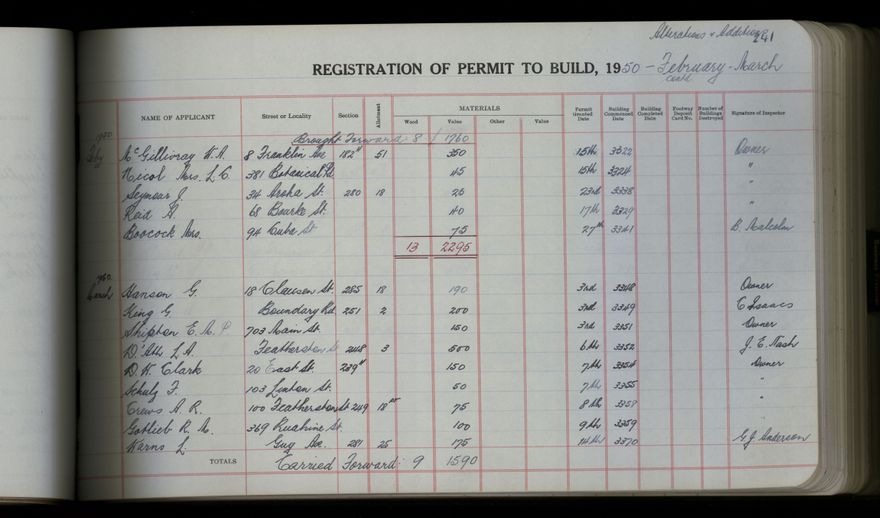 Alterations & Additions
241
REGISTRATION OF PERMIT TO BUILD, 1950 - February - March
contd
NAME OF APPLICANT Street or Locality Section Allotment MATERIALS Permit Granted Date Building Commenced Date Building Completed Date Footway Deposit Card No. Number of Buildings Destroyed Signature of Inspector
Wood Value Other Value
Brought Forward: 8 / 1760
1950
Feby McGillivray W. A. 8 Franklin Ave 182 51 350 15th 3322 Owner
Nicol Mrs. L. C. 381 Botanical Rd 45 15th 3324 "
Seymour J. 34 Aroha St. 280 18 25 23rd 3338 "
Reid A. 68 Bourke St. 40 17th 3329 "
Boocock Mrs. 94 Cuba St 75 27th 3341 B. Malcolm
13 2295
1950
March Hanson G. 18 Clausen St. 285 18 190 3rd 3348 Owner
King G. Boundary Rd. 251 2 200 3rd 3349 C Isaacs
Shipton E. A. P 703 Main St. 150 3rd 3351 Owner
D'Ath L. A. Featherston St 248 3 500 6th 3352 J. E. Nash
D. W. Clark 20 East St. 239 150 7th 3354 Owner
Schulz F. 103 Linton St. 50 7th 3355 "
Crews A. R. 100 Featherston St 249 18 75 8th 3358 "
Gotlieb R. M. 369 Ruahine St. 100 9th 3359 "
Karns L. Guy Ave. 281 25 175 14th 3370 G. J. Anderson
TOTALS Carried Forward: 9 1590